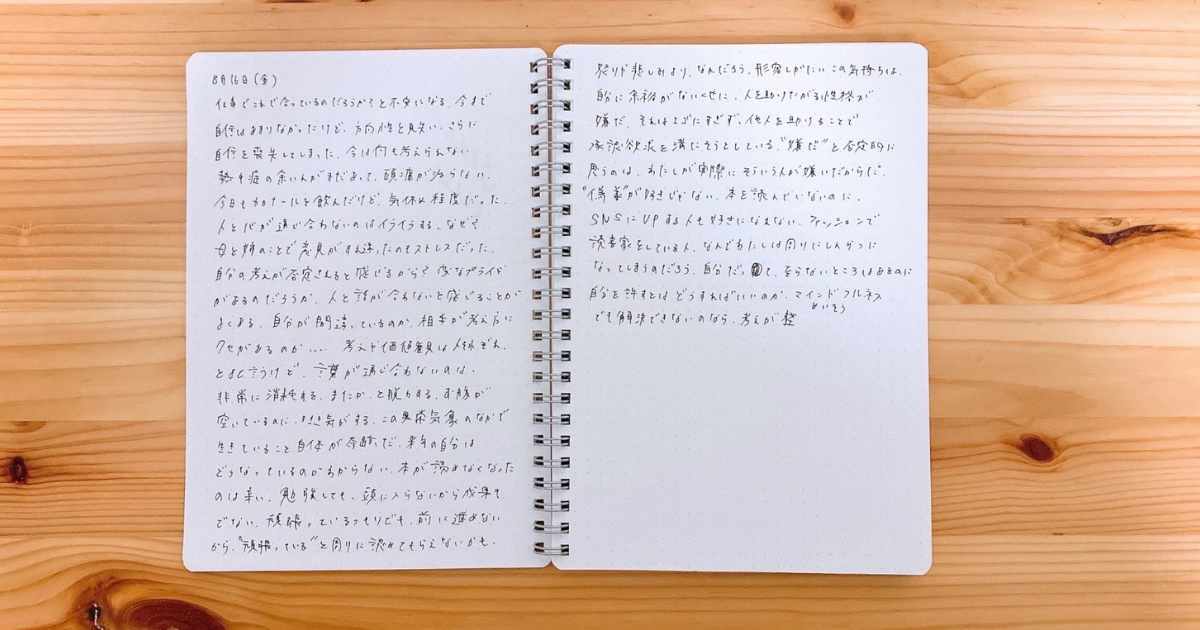 8月16日(金)
仕事でこれで合っているのだろうか?と不安になる。今まで
自信はあまりなかったけど、方向性を見失い、さらに
自信を喪失してしまった。今は何も考えられない
熱中症の余いんがまだあって、頭痛が治らない。
今日もカロナールを飲んだけど、気休め程度だった。
人と心が通じ合わないのはイライラする。なぜ?
母と姉のことで意見がすれ違ったのもストレスだった。
自分の考えが否定されると感じるから? 変なプライド
があるのだろうか。人と話が合わないと感じることが
よくある。自分が間違っているのか、相手が考え方に
クセがあるのか…。 考えや価値観は人それぞれ、
とはいうけど、言葉が通じ合わないのは、
非常に消耗する。またか、と脱力する。お腹が
空いているのに、吐き気がする。この異常気象のなかで
生きていること自体が奇跡だ。来年の自分は
どうなっているのかわからない。本が読めなくなった
のは辛い。勉強しても、頭に入らないから成果も
でない。頑張っているつもりでも、前に進めない
から、"頑張っている"と周りに認めてもらえないかも。
怒りや悲しみより、なんだろう、形容しがたいこの気持ちは。
自分に余裕がないくせに、人を助けたがる性格が
嫌だ。それはエゴにすぎず、他人を助けることで
承認欲求を満たそうとしている。"嫌だ"と否定的に
思うのは、わたしが実際にそういう人が嫌いだからだ。
"偽善"が好きじゃない。本を読んでいないのに、
SNSにUPする人も好きになれない。ファッションで
読書家をしている人。なんでわたしは周りにしんらつに
なってしまうのだろう。自分だって、至らないところはあるのに
自分を許すにはどうすればいいのか。マインドフルネス
めいそう
でも解決できないのなら、考えが整